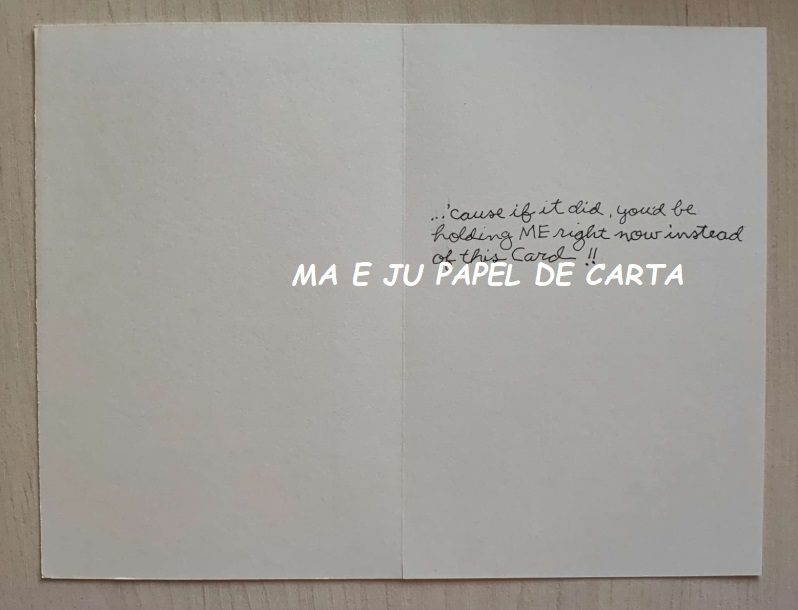 ...'cause if it did, you'd be
holding ME right now instead
of this Card !!
MA E JU PAPEL DE CARTA